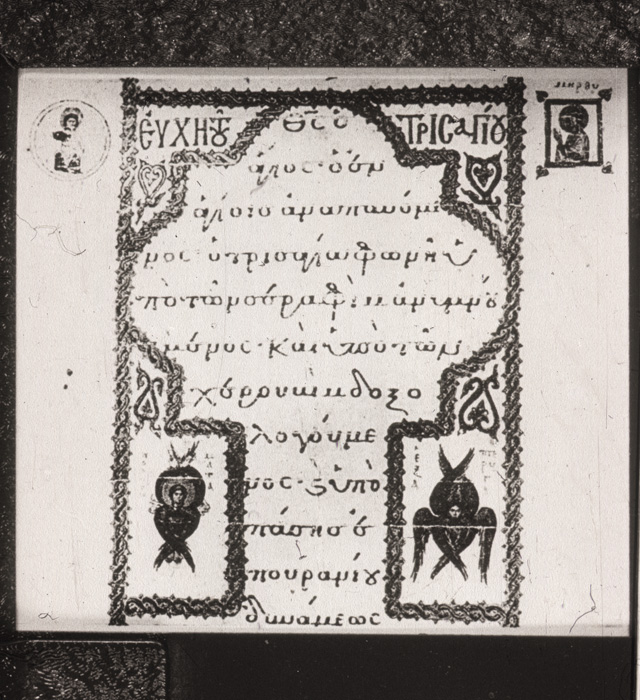 ΜΗΡ ΘΥ
ΕΥΧΗ Τȣ ΤΡΙCΑΓΙȣ
Θ̅C̅ ὁ
ἅγιος· ὁ ἐν
ἁγίοις ἀναπαυόμε
νος· ὁ τρισαγία φωνῆ ὑ
πὸ τῶν σεραφὶμ ἀνυμνού
μενος· καὶ ὑπὸ τῶν
χερουβιμ δοξο
λογούμε
νος· ϗ ὑπὸ
πάσησ ἐ
πουρανίου
δυνάμεως